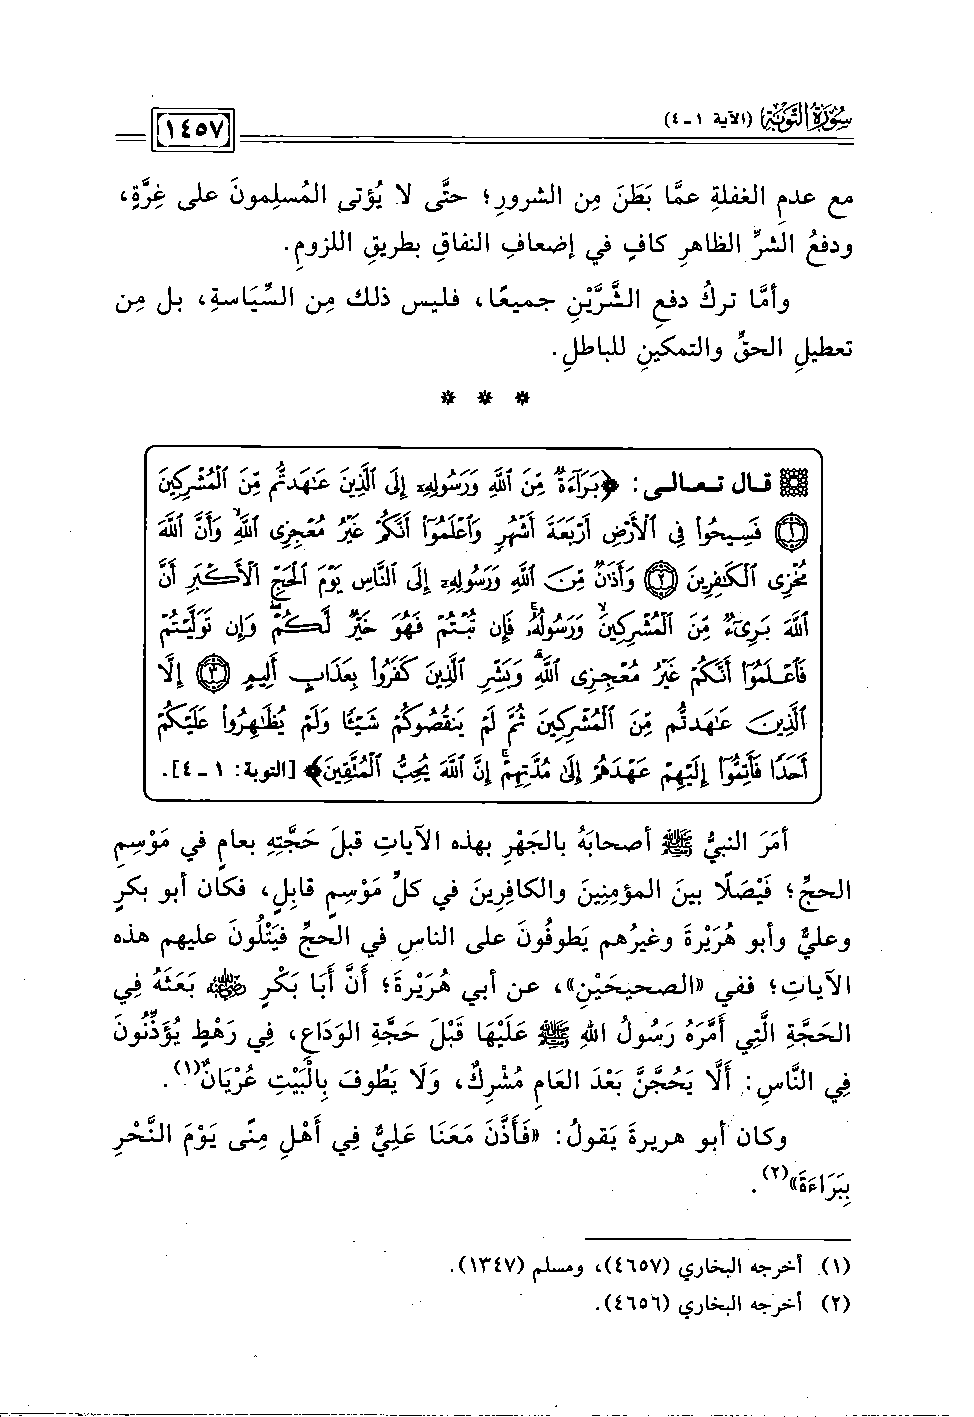 سورة التوبة (الآية ١ - ٤)
١٤٥٧
مع عدمِ الغفلةِ عمَّا بَطَنَ مِن الشرورِ؛ حتَّى لا يُؤتى المُسلِمونَ على غِرَّةٍ،
ودفعُ الشرِّ الظاهرِ كافٍ في إضعافِ النفاقِ بطريقِ اللزومِ.
وأمَّا تركُ دفعِ الشَّرَّيْنِ جميعًا، فليس ذلك مِن السِّياسةِ، بل مِن
تعطيلِ الحقِّ والتمكينِ للباطلِ.
* * *
قال تعالى: ﴿بَرَآءَةٌ مِّنَ ٱللَّهِ وَرَسُولِهِۦٓ إِلَى ٱلَّذِينَ عَٰهَدتُّم مِّنَ ٱلْمُشْرِكِينَ
١ فَسِيحُوا۟ فِى ٱلْأَرْضِ أَرْبَعَةَ أَشْهُرٍ وَٱعْلَمُوٓا۟ أَنَّكُمْ غَيْرُ مُعْجِزِى ٱللَّهِ ۙ وَأَنَّ ٱللَّهَ
مُخْزِى ٱلْكَٰفِرِينَ ٢ وَأَذَٰنٌ مِّنَ ٱللَّهِ وَرَسُولِهِۦٓ إِلَى ٱلنَّاسِ يَوْمَ ٱلْحَجِّ ٱلْأَكْبَرِ أَنَّ
ٱللَّهَ بَرِىٓءٌ مِّنَ ٱلْمُشْرِكِينَ ۙ وَرَسُولُهُۥ ۚ فَإِن تُبْتُمْ فَهُوَ خَيْرٌ لَّكُمْ ۖ وَإِن تَوَلَّيْتُمْ
فَٱعْلَمُوٓا۟ أَنَّكُمْ غَيْرُ مُعْجِزِى ٱللَّهِ ۗ وَبَشِّرِ ٱلَّذِينَ كَفَرُوا۟ بِعَذَابٍ أَلِيمٍ ٣ إِلَّا
ٱلَّذِينَ عَٰهَدتُّم مِّنَ ٱلْمُشْرِكِينَ ثُمَّ لَمْ يَنقُصُوكُمْ شَيْـًٔا وَلَمْ يُظَٰهِرُوا۟ عَلَيْكُمْ
أَحَدًا فَأَتِمُّوٓا۟ إِلَيْهِمْ عَهْدَهُمْ إِلَىٰ مُدَّتِهِمْ ۚ إِنَّ ٱللَّهَ يُحِبُّ ٱلْمُتَّقِينَ﴾ [التوبة: ١ - ٤].
أمَرَ النبيُّ ﷺ أصحابَهُ بالجَهْرِ بهذه الآياتِ قبلَ حَجَّتِهِ بعامٍ في مَوْسِمِ
الحجِّ؛ فَيْصَلًا بينَ المؤمِنِينَ والكافِرِينَ في كلِّ مَوْسِمٍ قابِلٍ، فكان أبو بكرٍ
وعليٌّ وأبو هُرَيْرةَ وغيرُهم يَطوفُونَ على الناسِ في الحجِّ فيَتْلُونَ عليهم هذه
الآياتِ؛ ففي «الصحيحَيْنِ»، عن أبي هُرَيْرةَ؛ أَنَّ أَبَا بَكْرٍ رضي الله عنه بَعَثَهُ فِي
الحَجَّةِ الَّتِي أَمَّرَهُ رَسُولُ اللهِ ﷺ عَلَيْهَا قَبْلَ حَجَّةِ الوَدَاعِ، فِي رَهْطٍ يُؤَذِّنُونَ
فِي النَّاسِ: أَلَّا يَحُجَّنَّ بَعْدَ العَامِ مُشْرِكٌ، وَلَا يَطُوفَ بِالْبَيْتِ عُرْيَانٌ(١).
وكان أبو هريرةَ يَقولُ: «فَأَذَّنَ مَعَنَا عَلِيٌّ فِي أَهْلِ مِنًى يَوْمَ النَّحْرِ
بِبَرَاءَةَ»(٢).
(١) أخرجه البخاري (٤٦٥٧)، ومسلم (١٣٤٧).
(٢) أخرجه البخاري (٤٦٥٦).